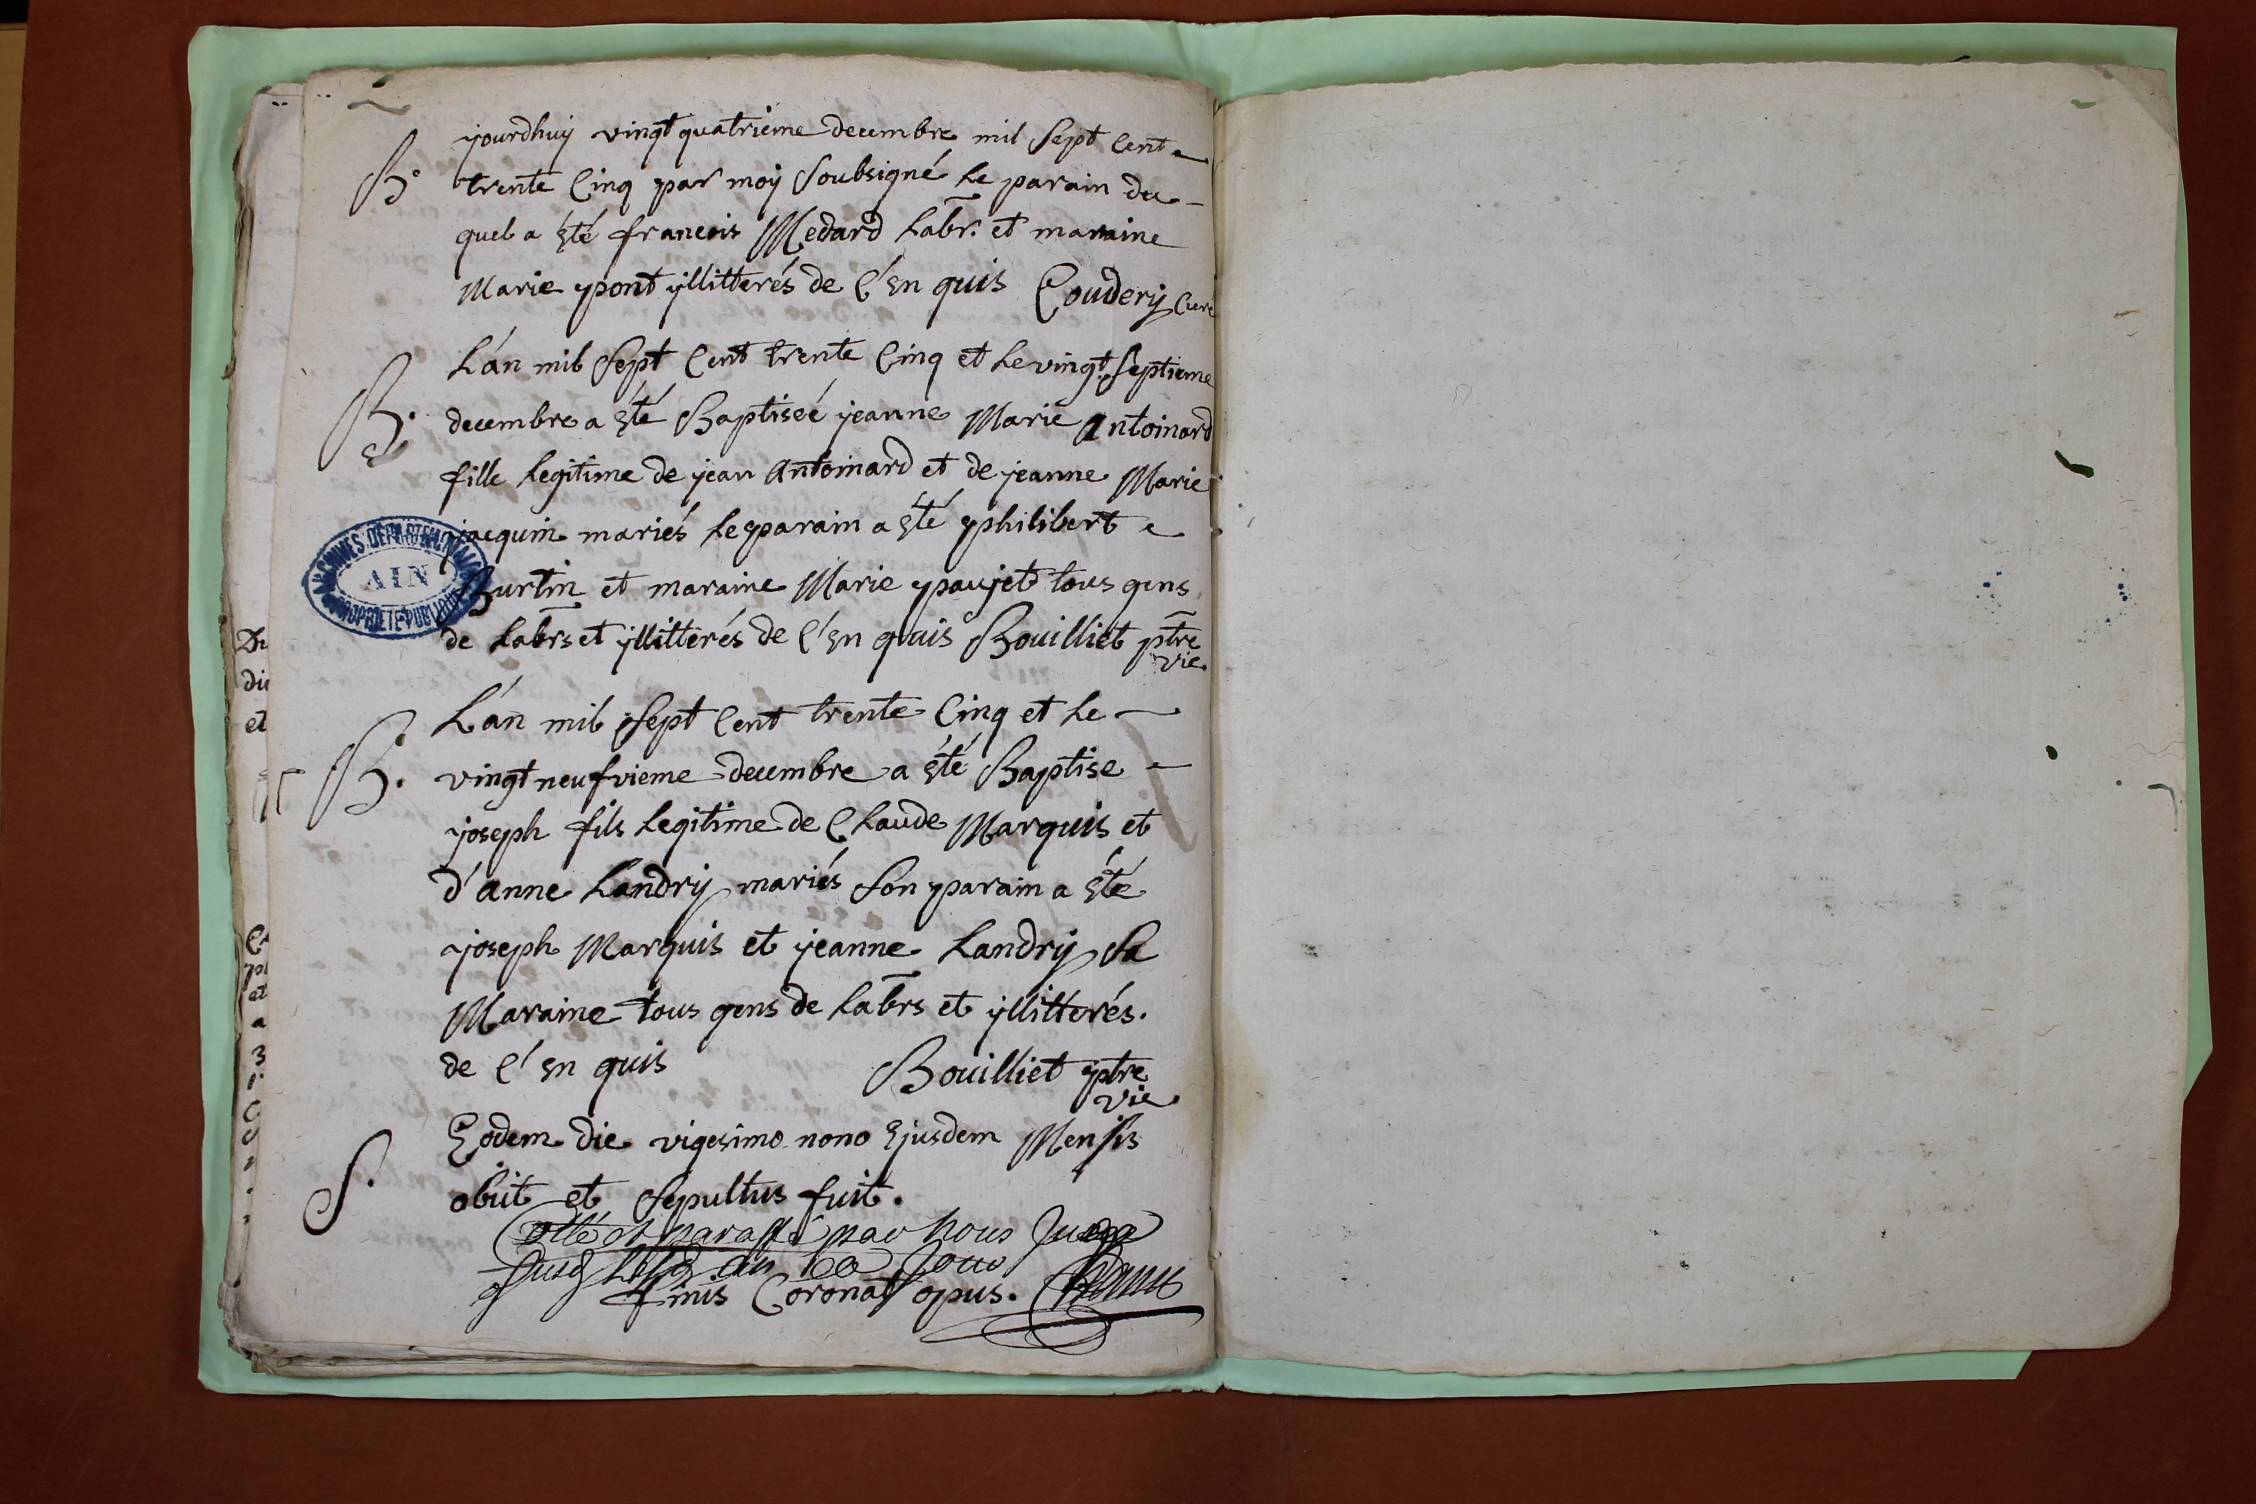 B.
yourdhuy vingt quatrieme decembre mil sept cent
trente cinq par moy soubsigné le parain du
quel a êté francois Medard labr. et maraine
Marie pont yllitterés de c'en quis Coudery curé
B.
L'an mil sept cent trente cinq et le vingt septieme
decembre a êté Baptiseé jeanne Marie Antoinard
fille legitime de jean Antoinard et de jeanne Marie
jacquin mariés le parain a êté philibert
Burtin et maraine Marie paujet tous gens
de labrs et yllitterés de c'en quis Bouilliet ptre
vic.
ARCHIVES DÉPARTEMENTALES
AIN
PROPRIÉTÉ PUBLIQUE
B.
L'an mil sept cent trente cinq et le
vingt neufvieme decembre a êté Baptise
joseph fils legitime de Claude Marquis et
d'anne Landry mariés son parain a êté
joseph Marquis et jeanne Landry sa
Maraine tous gens de labrs et yllitterés.
de c'en quis Bouilliet ptre
vic.
S.
Eodem die vigesimo nono Ejusdem Mensis
obiit et sepultus fuit.
Cotté et paraffé par Nous Juge
finis Coronat opus.
Du
di
et